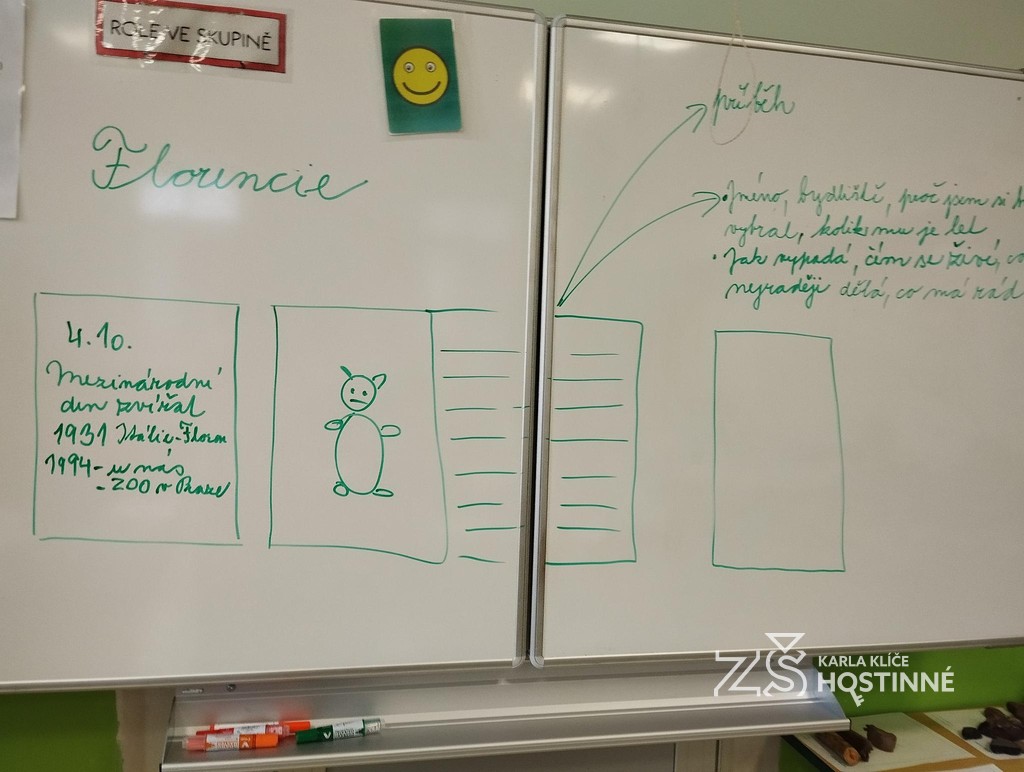 ROLE VE SKUPINĚ
Florencie
průběh
• Jméno, bydliště, proč jsem si
vybral, kolik mu je let
• Jak vypadá, čím se živí, co
nejraději dělá, co má rád
4.10.
Mezinárodní
den zvířat
1931 Itálie - Floren
1994 - u nás
- ZOO v Praze
ZŠ KARLA KLÍČE
HOSTINNÉ